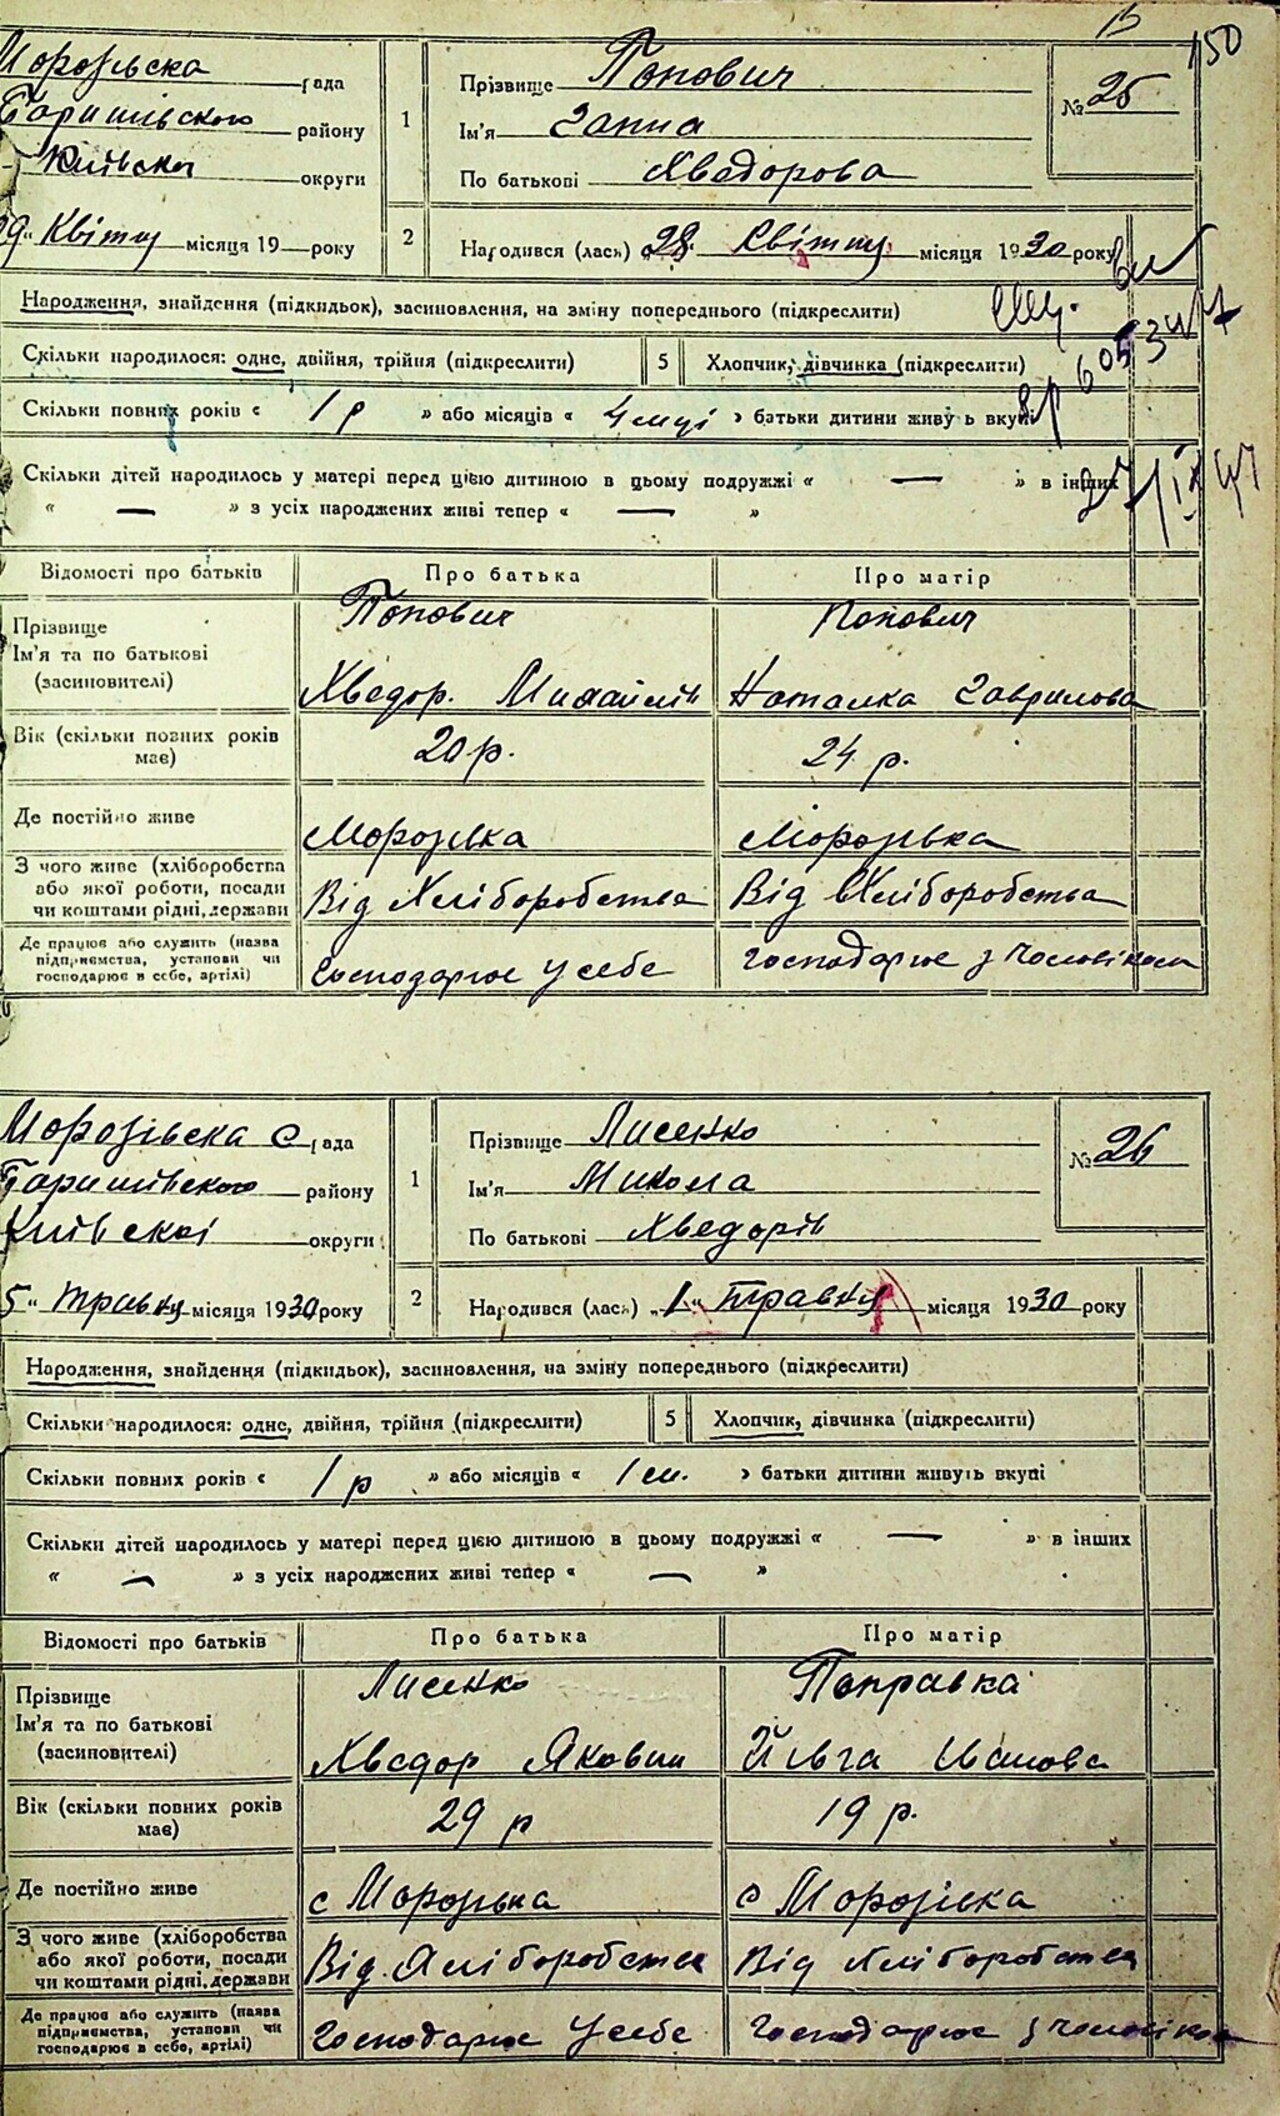 150
Морозівска рада
Баришівского району
Київскої округи
29" Квітня місяця 19 року
1
Прізвище Попович
Ім'я Ганна
По батькові Хведорова
№ 25
2
Народився (лась) „28" Квітня місяця 1930 року
Народження, знайдення (підкидьок), засиновлення, на зміну попереднього (підкреслити)
Скільки народилося: одне, двійня, трійня (підкреслити) 5 Хлопчик, дівчинка (підкреслити)
Скільки повних років « 1 р » або місяців « 4 місці » батьки дитини живуть вкупі
Скільки дітей народилось у матері перед цією дитиною в цьому подружжі « — » в інших
« — » з усіх народжених живі тепер « — »
Відомості про батьків Про батька Про матір
Прізвище Попович Попович
Ім'я та по батькові
(засиновителі) Хведор. Михайлів Наталка Гаврилова
Вік (скільки повних років
має) 20 р. 24 р.
Де постійно живе Морозівка Морозівка
З чого живе (хліборобства
або якої роботи, посади
чи коштами рідні, держави Від Хліборобства Від Хліборобства
Де працює або служить (назва
підприємства, установи чи
господарює в себе, артілі) Господарює у себе Господарює з чоловіком
Морозівска с рада
Баришівского району
Київскої округи
5" травня місяця 1930 року
1
Прізвище Лисенко
Ім'я Микола
По батькові Хведорів
№ 26
2
Народився (лась) „1" травня місяця 1930 року
Народження, знайдення (підкидьок), засиновлення, на зміну попереднього (підкреслити)
Скільки народилося: одне, двійня, трійня (підкреслити) 5 Хлопчик, дівчинка (підкреслити)
Скільки повних років « 1 р » або місяців « 1 м. » батьки дитини живуть вкупі
Скільки дітей народилось у матері перед цією дитиною в цьому подружжі « — » в інших
« — » з усіх народжених живі тепер « — »
Відомості про батьків Про батька Про матір
Прізвище Лисенко Поправка
Ім'я та по батькові
(засиновителі) Хведор Якович Йивга Іванова
Вік (скільки повних років
має) 29 р 19 р.
Де постійно живе с Морозівка с Морозівка
З чого живе (хліборобства
або якої роботи, посади
чи коштами рідні, держави Від Хліборобства Від Хліборобства
Де працює або служить (назва
підприємства, установи чи
господарює в себе, артілі) Господарює у себе Господарює з чоловіком